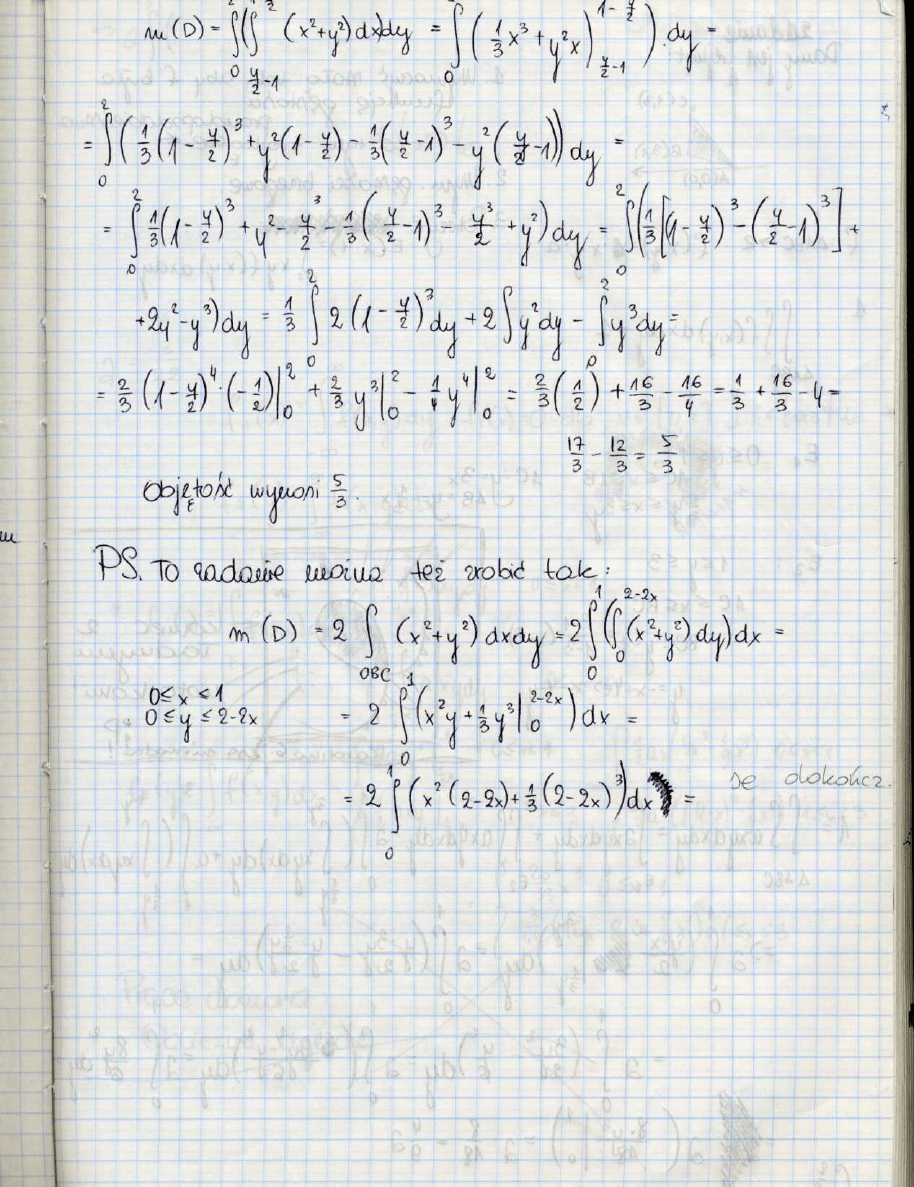 m(D) = ∫₀² (∫_{y/2-1}^{1-y/2} (x²+y²)dx)dy = ∫₀² (1/3 x³ + y²x)|_{y/2-1}^{1-y/2}) dy =
= ∫₀² (1/3(1-y/2)³ + y²(1-y/2) - 1/3(y/2-1)³ - y²(y/2-1)) dy =
= ∫₀² 1/3(1-y/2)³ + y² - y³/2 - 1/3(y/2-1)³ - y³/2 + y²) dy = ∫₀² (1/3[(1-y/2)³ - (y/2-1)³] +
+2y²-y³)dy = 1/3 ∫₀² 2(1-y/2)³dy + 2∫y²dy - ∫₀²y³dy =
= 2/3 (1-y/2)⁴·(-1/2)|₀² + 2/3 y³|₀² - 1/4 y⁴|₀² = 2/3(1/2) + 16/3 - 16/4 = 1/3 + 16/3 - 4 =
17/3 - 12/3 = 5/3
Objętość wynosi 5/3.
PS. To zadanie można też zrobić tak:
m(D) = 2 ∫_{OBC} (x²+y²)dxdy = 2∫₀¹(∫₀^{2-2x}(x²+y²)dy)dx =
0≤x≤1
0≤y≤2-2x
= 2 ∫₀¹ (x²y + 1/3 y³|₀^{2-2x})dx =
= 2 ∫₀¹ (x²(2-2x) + 1/3(2-2x)³)dx =
dokończ.